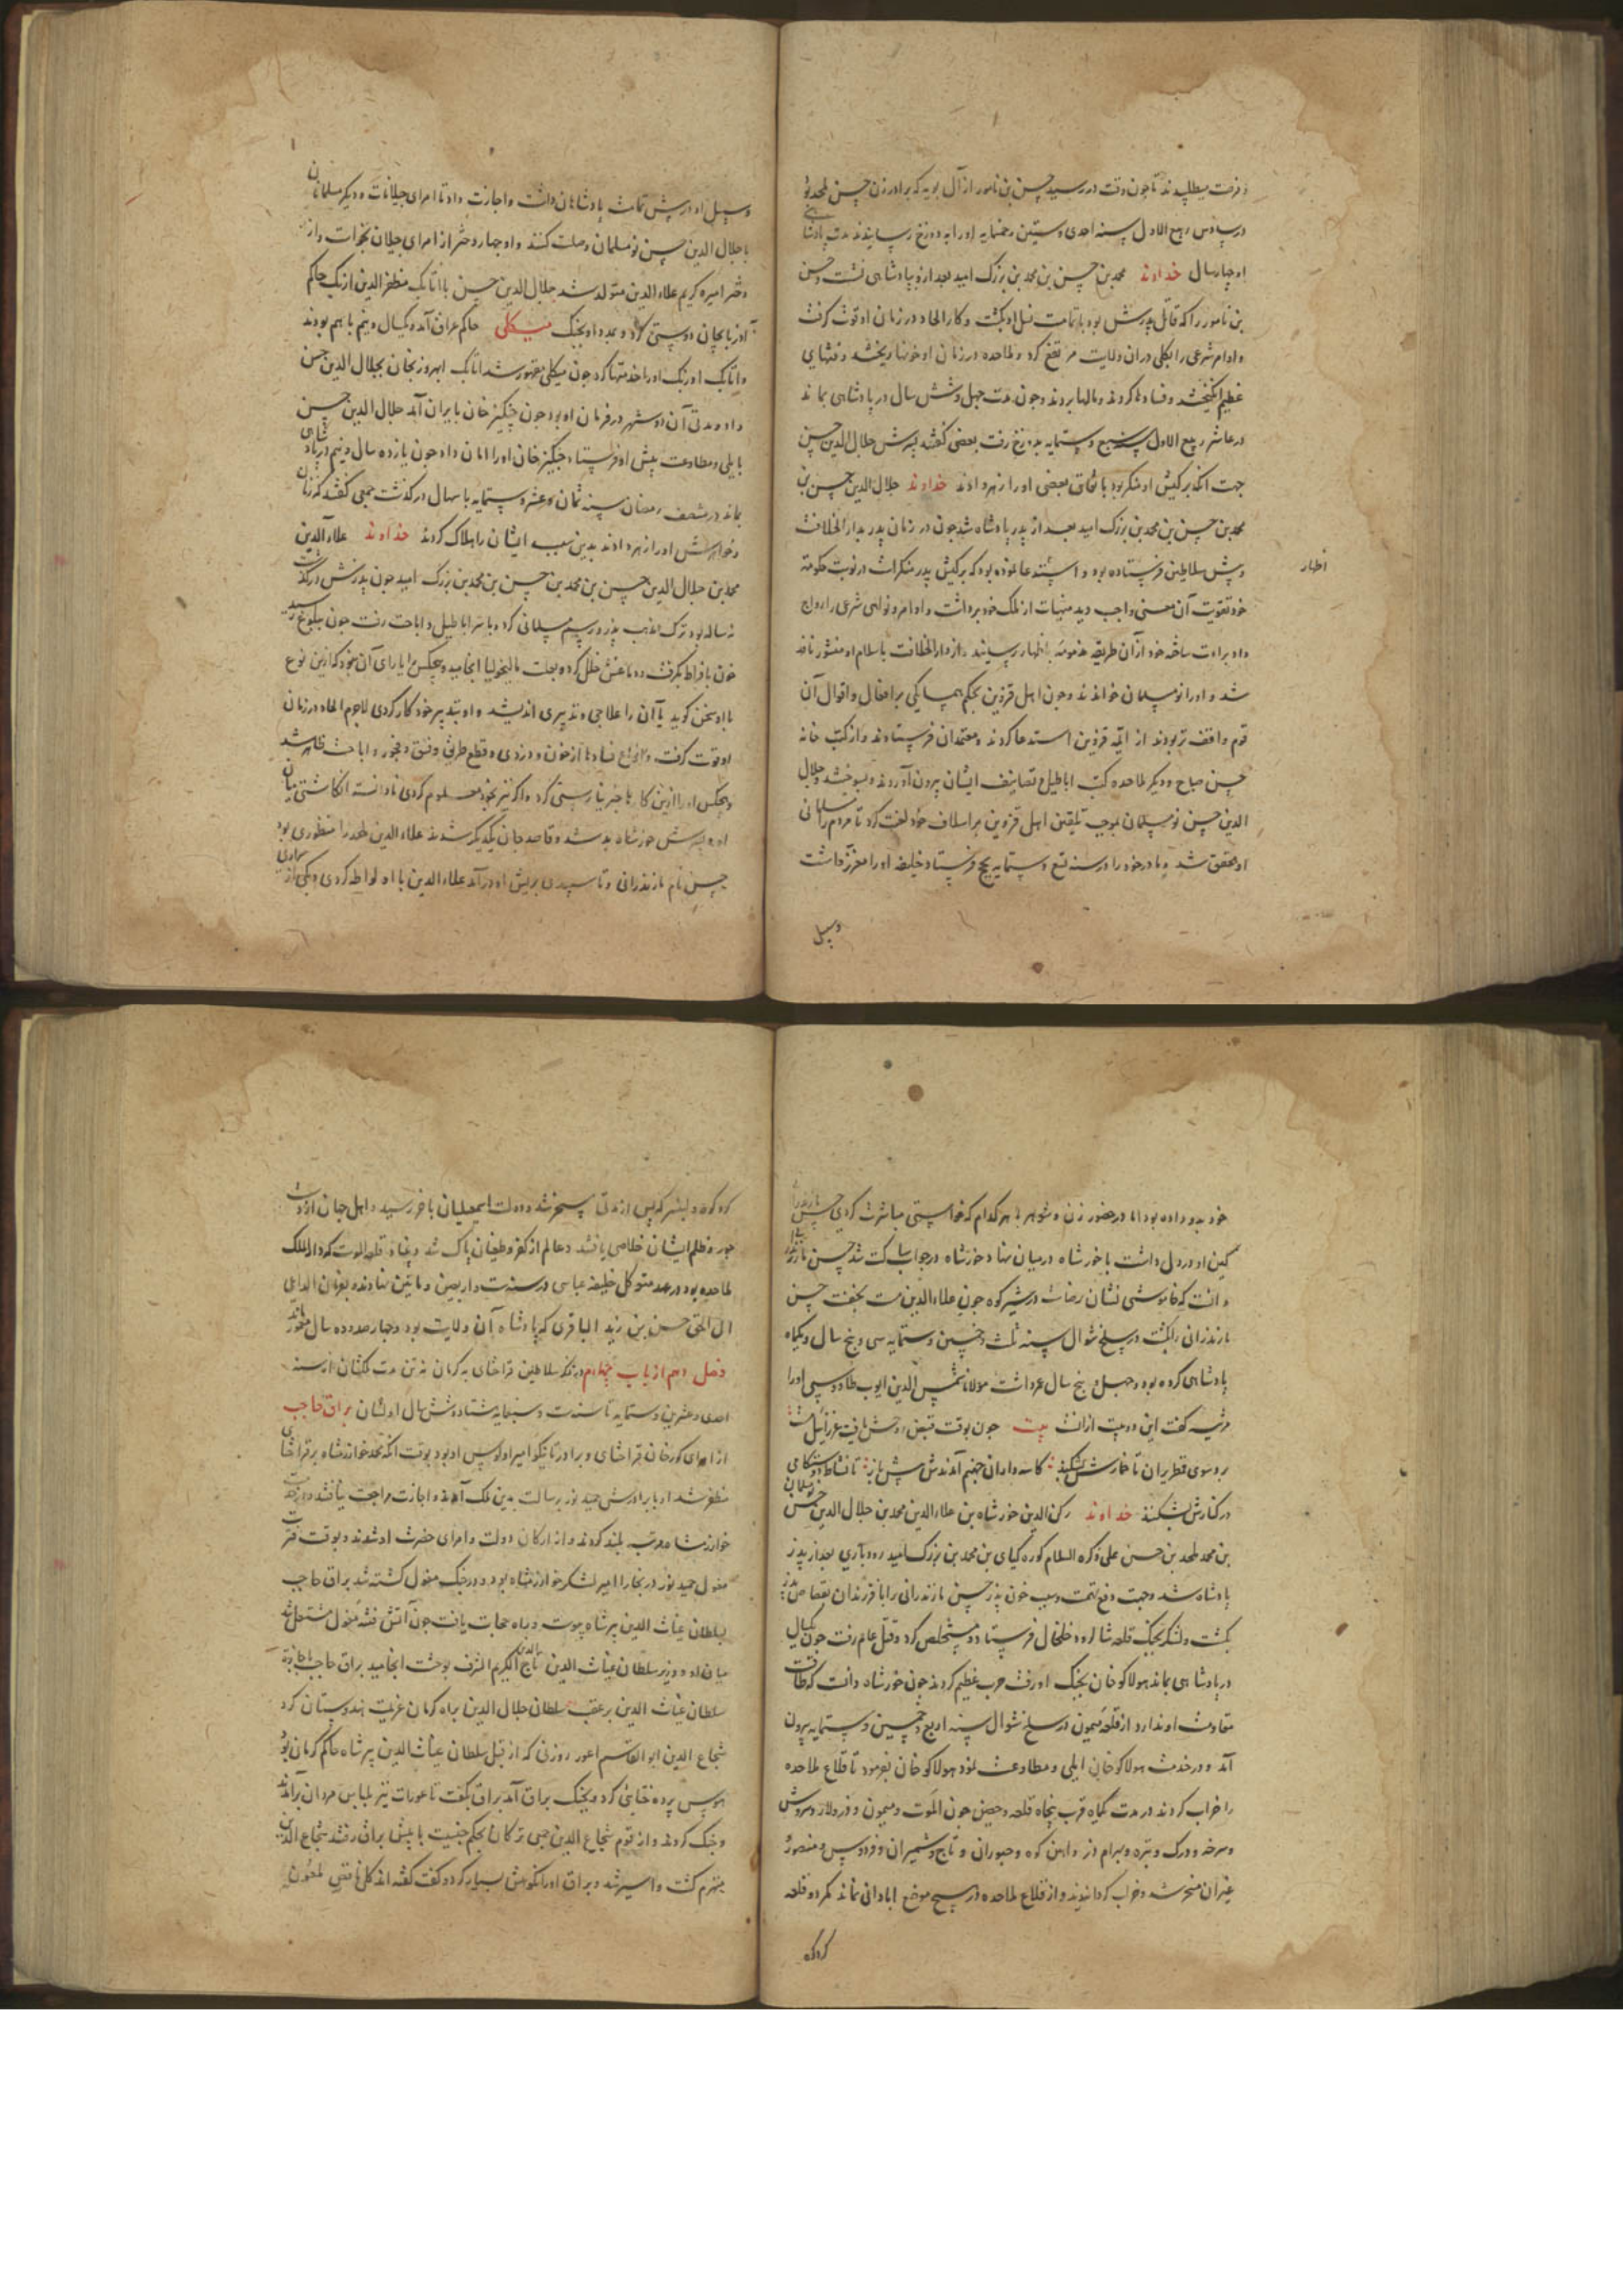 و فرصت میطلبیدند تا چون وقت در رسید حسن بن نامور از آل بویه که برادر زن حسن ملحد بود
در سادس ربیع الاول سنه احدی و ستین و خمسمایه او را به دوزخ رسانیدند مدت پادشاهی
او چهار سال خداوند محمد بن حسن بن محمد بن بزرک امید بعد ازو بپادشاهی نشست و حسن
بن نامور را که قاتل پدرش بود با تمامت نسل او بکشت و کار الحاد در زمان او قوت کرفت
و اوامر شرعی را بکلی در ان ولایت مرتفع کرد و ملاحده در زمان او خونها ریختند و فتنهای
عظیم انکیختند و فسادها کردند و مالها بردند و چون مدت چهل و شش سال در پادشاهی بماند
در عاشر ربیع الاول سنه سبع و ستمایه بدوزخ رفت بعضی کفتند پسرش جلال الدین حسن
جهت انکه بر کیش او منکر بود باتفاق بعضی او را زهر دادند خداوند جلال الدین حسن بن
محمد بن حسن بن محمد بن بزرک امید بعد از پدر پادشاه شد چون در زمان پدر بدار الخلافت
و پیش سلاطین فرستاده بود و استدعا نموده بود که بر کیش پدر منکر است در نوبت حکومت
اظهار
خود تقویت آن معنی واجب دید منهیات از ملک خود برداشت و اوامر و نواهی شرعی را رواج
داد براءت ساحه خود از آن طریقه مذمومه باظهار رسانید و از دار الخلافت باسلام او منشور نافذ
شد و او را نومسلمان خواندند و چون اهل قزوین بحکم همسایکی بر افعال و اقوال آن
قوم واقف تر بودند از ایمه قزوین استدعا کردند و معتمدان فرستادند و از کتب خانه
حسن صباح و دیکر ملاحده کتب اباطیل و تصانیف ایشان بیرون آوردند و بسوختند و جلال
الدین حسن نومسلمان بموجب تلقین اهل قزوین بر اسلاف خود لعنت کرد تا مردم را مسلمانی
او محقق شد و مادر خود را در سنه تسع و ستمایه بحج فرستاد خلیفه او را معزز داشت
و سبیل
و سبیل او در پیش تمامت پادشاهان داشت و اجازت داد تا امرای جیلانات و دیکر مسلمانان
با جلال الدین حسن نومسلمان وصلت کنند و او چهار دختر از امرای جیلان بخواست و از
دختر امیره کریم علاء الدین متولد شد جلال الدین حسن با اتابک مظفر الدین ازبک حاکم
آذربایجان دوستی کرد و بمدد او بجنک میکلی حاکم عراق آمد و یکسال و نیم با هم بودند
و اتابک اوزبک او را خدمتها کرد چون میکلی مقهور شد اتابک ابهر و زنجان بجلال الدین حسن
داد و مدتی آن دو شهر در فرمان او بود چون چنکیز خان بایران آمد جلال الدین حسن
بایلی و مطاوعت پیش او فرستاد چنکیز خان او را امان داد چون یازده سال و نیم در پادشاهی
بماند در منتصف رمضان سنه ثمان و عشر و ستمایه باسهال در کذشت جمعی کفتند که زنان
و خواهرش او را زهر دادند بدین سبب ایشان را هلاک کردند خداوند علاء الدین
محمد بن جلال الدین حسن بن محمد بن حسن بن محمد بن بزرک امید چون پدرش در کذشت
نه ساله بود ترک مذهب پدر و رسم مسلمانی کرد و با سر اباطیل و اباحت رفت چون ببلوغ رسید
خون بافراط بکرفت دماغش خلل کرد و بعلت مالیخولیا انجامید و هیچکس را یارای آن نبود که ازین نوع
با او سخن کوید یا آن را علاجی و تدبیری اندیشد و او بتدبیر خود کار کردی لاجرم الحاد در زمان
او قوت کرفت و انواع فسادها از خون و دزدی و قطع طریق و فسق و فجور و اباحت ظاهر شد
و هیچکس او را ازین کارها خبر نیارستی کرد و اکر نیز خود معلوم کردی نادانسته انکاشتی میان
او و پسرش خورشاه بد شد و قاصد جان یکدیکر شدند علاء الدین ملحد را منظوری بود
حسن نام مازندرانی و تا سپیدی بریش او در آمد علاء الدین با او لواطه کردی و یکی از سراری
خود بدو داده بود اما در حضور زن و شوهر با هر کدام که خواستی مباشرت کردی حسن مازندرانی
کین او در دل داشت با خورشاه در میان نهاد خورشاه در جواب ساکت شد حسن مازندرانی
دانست که خاموشی نشان رضاست در شیر کوه چون علاء الدین مست بخفت حسن
مازندرانی را بکشت در سلخ شوال سنه ثلث و خمسین و ستمایه سی و پنج سال و یکماه
پادشاهی کرده بود و چهل و پنج سال عمر داشت مولانا شمس الدین ایوب طاووسی او را
مرثیه کفت این دو بیت از انست بیت چون بوقت قبض روحش یافت عزرائیل مست
برد سوی قطربران تا خمارش بشکند کاسه داران جهنم آمدندش پیش باز تا نشاط دوستکامی
در کنارش بشکنند خداوند رکن الدین خورشاه بن علاء الدین محمد بن جلال الدین حسن نومسلمان
بن محمد ملحد بن حسن علی ذکره السلام کوره کیای بن محمد بن بزرک امید رودباری بعد از پدر
پادشاه شد و جهت دفع تهمت و سبب خون پدر حسن مازندرانی را با فرزندان بقصاص پدر
بکشت و لشکر بجنک قلعه شالرود خلخال فرستاد و مستخلص کرد و قتل عام رفت چون یکسال
در پادشاهی بماند هولاکو خان بجنک او رفت حرب عظیم کردند چون خورشاه دانست که طاقت
مقاومت او ندارد از قلعه میمون در سلخ شوال سنه اربع و خمسین و ستمایه بیرون
آمد و در خدمت هولاکو خان ایلی و مطاوعت نمود هولاکو خان بفرمود تا قلاع ملاحده
را خراب کردند در مدت یکماه قرب پنجاه قلعه و حصن چون الموت و میمون و وزولاز و سروش
و سرخه و درک و نیره و بهرام دز و اهن کوه و حوران و تاج و شمیران و فردوس و منصوره
غیران مسخر شد و خراب کردانیدند و از قلاع ملاحده در هیچ موضع ابادانی نماند مکر دو قلعه
کردکوه
کردکوه و لنبسر که پس از مدتی مسخر شد و دولت اسمعیلیان باخر رسید و اهل جهان از دست
جور و ظلم ایشان خلاصی یافتند و عالم از کفر و طغیان پاک شد و بنیاد قلعه الموت که دار الملک
ملاحده بود در عهد متوکل خلیفه عباسی در سنه ست و اربعین و مایتین نهادند بفرمان الداعی
الی الحق حسن بن زید الباقری که پادشاه آن ولایت بود و چهارصد و ده سال معمور بماند
فصل دهم از باب چهارم در ذکر سلاطین قراختای به کرمان نه تن مدت ملکشان از سنه
احدی و عشرین و ستمایه تا سنه ست و سبعمایه هشتاد و شش سال اولشان براق حاجب
از امرای کورخان قراختای و برادر تاینکو امیر اولوس او بود بوقت انکه محمد خوارزمشاه بر قراختای
مظفر شد او با برادرش حمید بور برسالت بدین ملک آمدند و اجازت مراجعت نیافتند در خدمت
خوارزمشاه مرتبه بلند کردند و از ارکان دولت و امرای حضرت او شدند و بوقت فترت
مغول حمید بور در بخارا امیر لشکر خوارزمشاه بود در جنک مغول کشته شد براق حاجب
بسلطان غیاث الدین پیر شاه پیوست و راه حجابت یافت چون آتش فتنه مغول مشتعل شد
میان او و وزیر سلطان غیاث الدین تاج الدین کریم الشرف بوحشت انجامید براق حاجب باجازت
سلطان غیاث الدین بر عقب سلطان جلال الدین براه کرمان عزیمت هندوستان کرد
شجاع الدین ابو القاسم اعور زوزنی که از قبل سلطان غیاث الدین پیر شاه حاکم کرمان بود
بهوس برده ختایی کرد و بجنک براق آمد براق بکفت تا عورات نیز لباس مردان براندند
و جنک کردند و از قوم شجاع الدین جمعی ترکان بحکم جنسیت با پیش براق رفتند شجاع الدین
منهزم کشت و اسیر شد و براق او را نکوهش بسیار کرد و کفت کفته اند کل ناقص ملعون